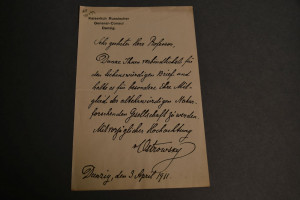 Kaiserlich Russischer
General-Consul
Danzig
Sehr geehrter Herr Professor,
Danke Ihnen verbindlichst für
den liebenswürdigen Brief und
halte es für besondere Ehre Mit-
glied der altehrwürdigen Natur-
forschenden Gesellschaft zu werden.
Mit vorzüglicher Hochachtung
Ostrowsky
Danzig, den 3 April 1911.